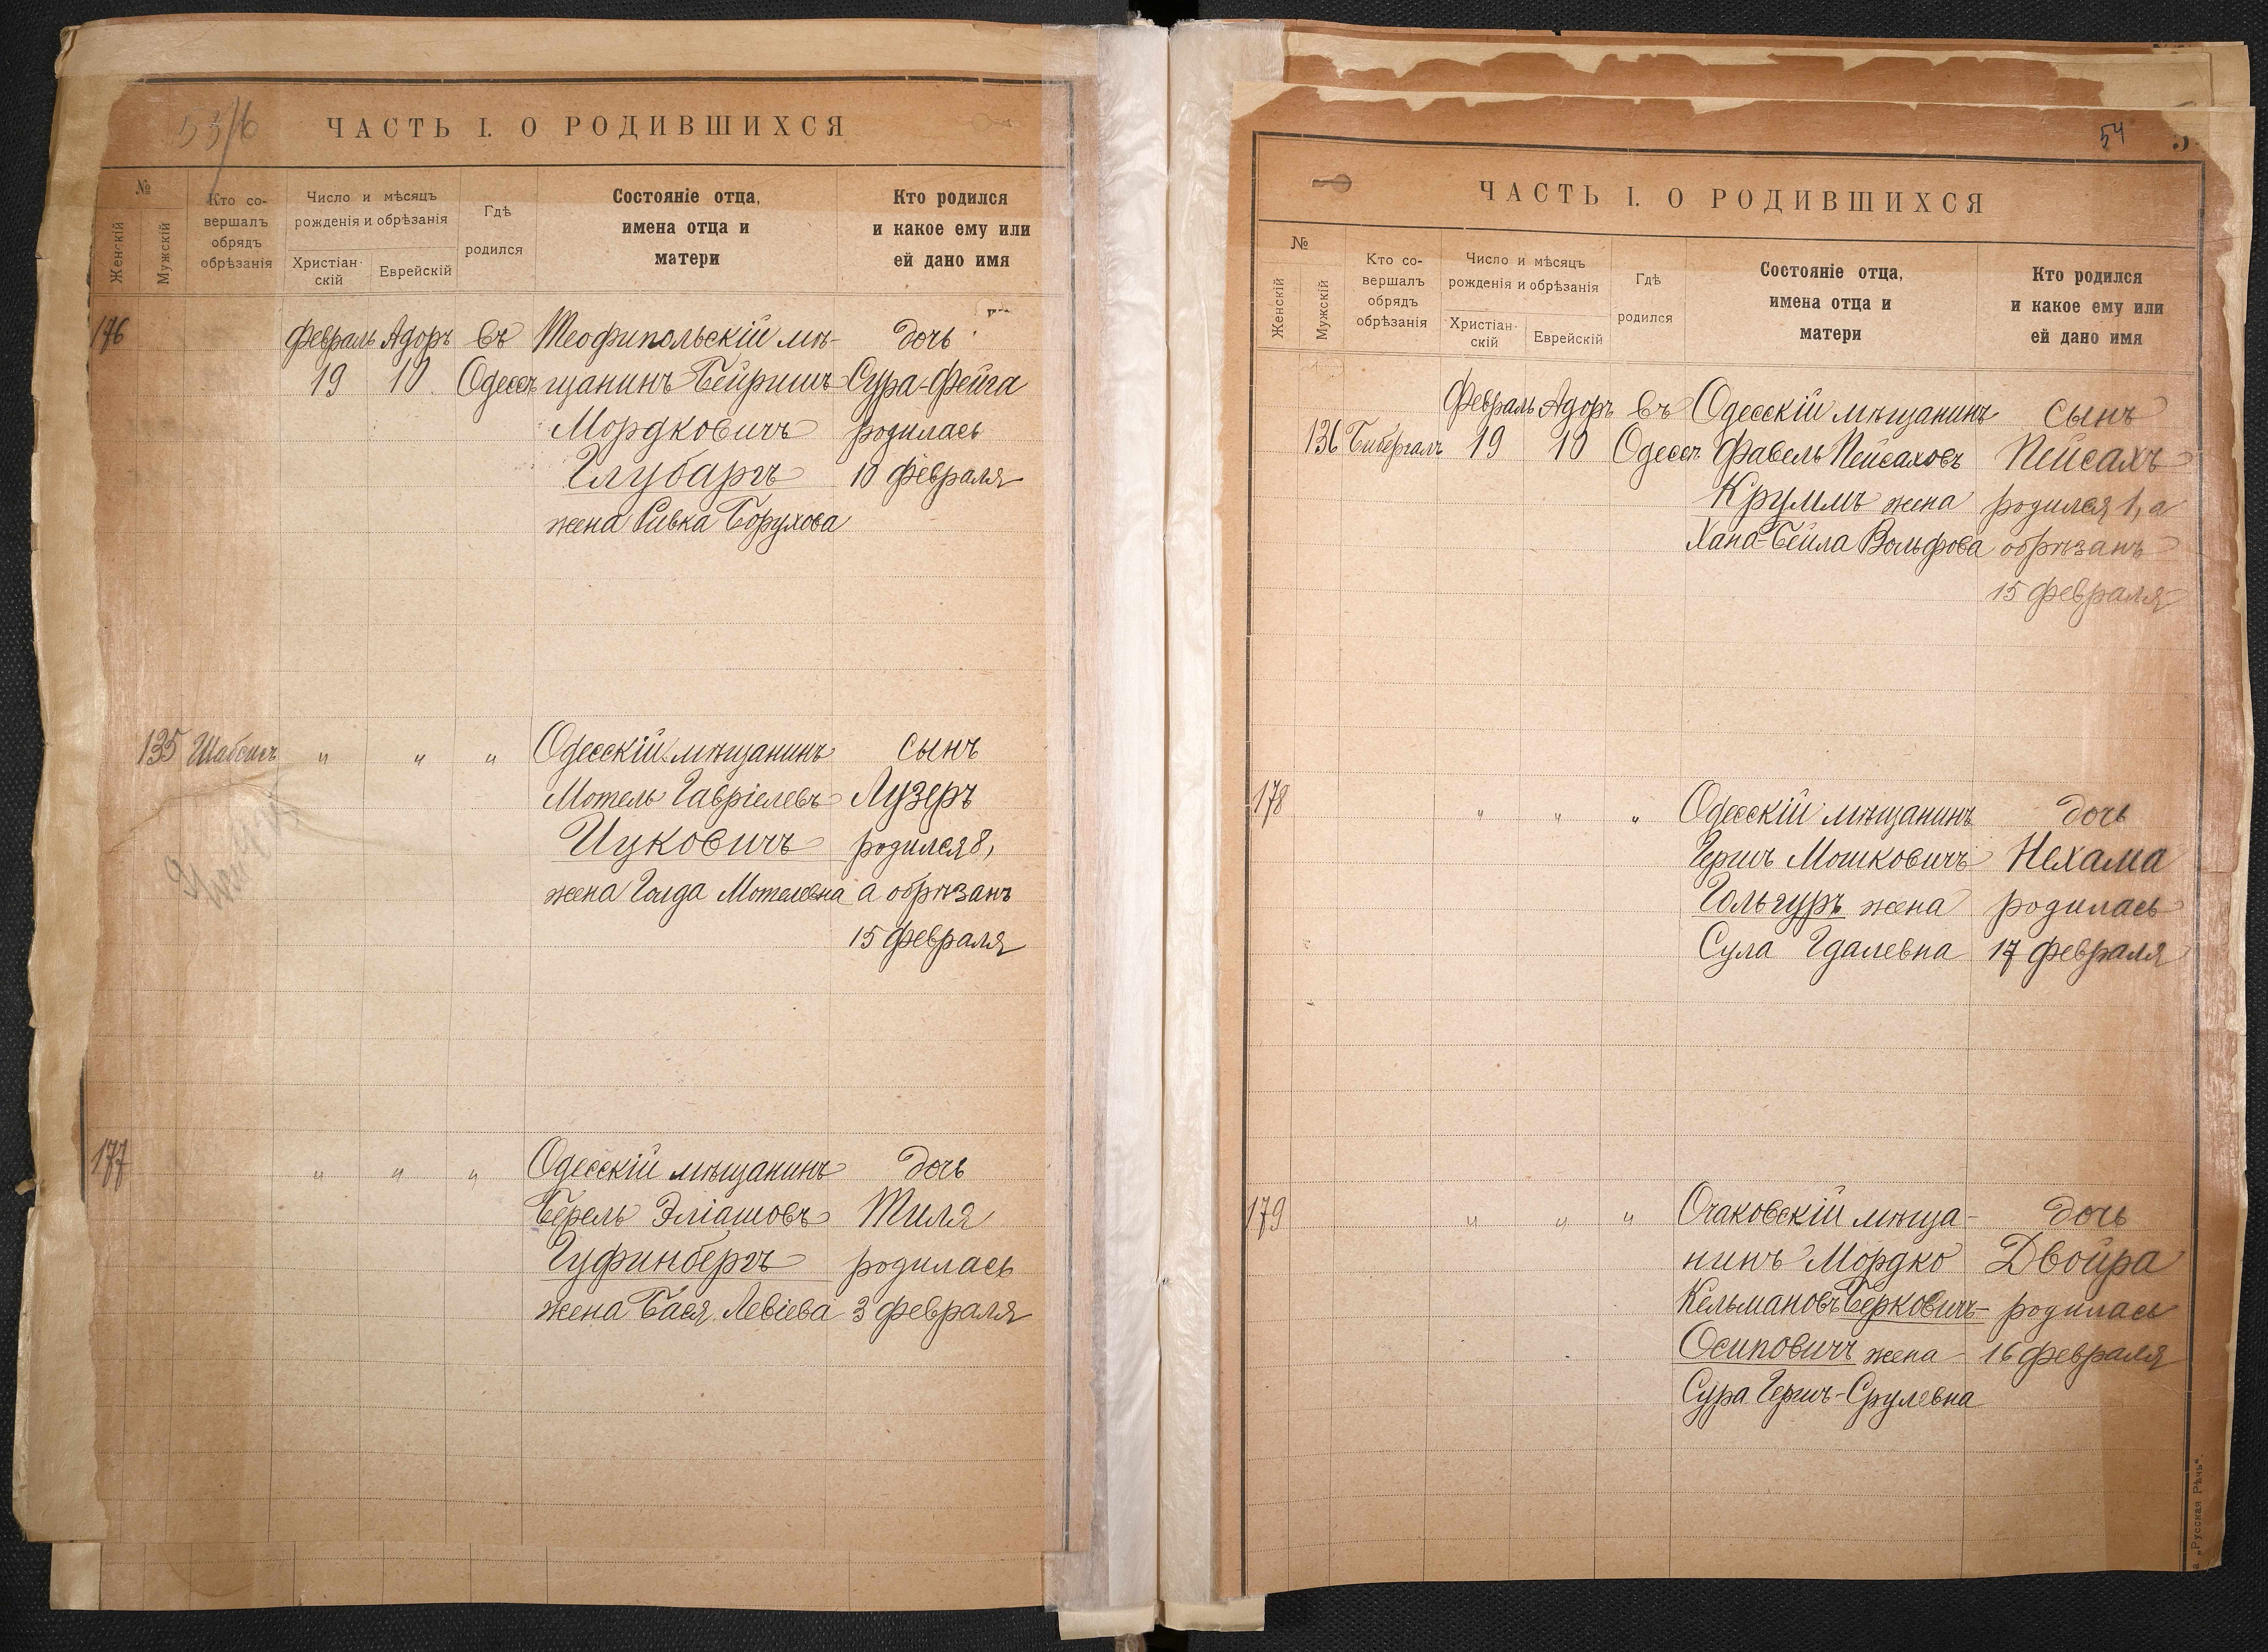 ЧАСТЬ I. О РОДИВШИХСЯ
№
Женскій
Мужскій
Кто со-
вершалъ
обрядъ
обрѣзанія
Число и мѣсяцъ
рожденія и обрѣзанія
Христіан-
скій
Еврейскій
Гдѣ
родился
Состояніе отца,
имена отца и
матери
Кто родился
и какое ему или
ей дано имя
176 Февраль Адоръ въ Теофипольскій мѣ- дочь
19 10 Одессѣ щанинъ Бейришъ Сура-Фейга
Мордковичъ родилась
Глубаргъ 10 февраля
жена Ривка Борухова
135 Шабсисъ " " " Одесскій мѣщанинъ сынъ
Мотель Гавріелевъ Лузеръ
Ицковичъ родился 8,
жена Голда Мотелевна а обрѣзанъ
15 февраля
177 " " " Одесскій мѣщанинъ дочь
Берель Эліашовъ Тиля
Гуфинбергъ родилась
жена Бася Левіева 3 февраля
54
ЧАСТЬ I. О РОДИВШИХСЯ
№
Женскій
Мужскій
Кто со-
вершалъ
обрядъ
обрѣзанія
Число и мѣсяцъ
рожденія и обрѣзанія
Христіан-
скій
Еврейскій
Гдѣ
родился
Состояніе отца,
имена отца и
матери
Кто родился
и какое ему или
ей дано имя
Февраль Адоръ въ Одесскій мѣщанинъ сынъ
136 Бибергалъ 19 10 Одессѣ Фавель Пейсаховъ Пейсахъ
Круммъ жена родился 1, а
Хана-Бейла Вольфова обрѣзанъ
15 февраля
178 " " " Одесскій мѣщанинъ дочь
Гершъ Мошковичъ Нехама
Гольгуръ жена родилась
Сула Гдалевна 17 февраля
179 " " " Очаковскій мѣща- дочь
нинъ Мордко Двойра
Кельмановъ Берковичъ- родилась
Осиповичъ жена 16 февраля
Сура Гершъ-Срулевна
а „Русская Рѣчь“.